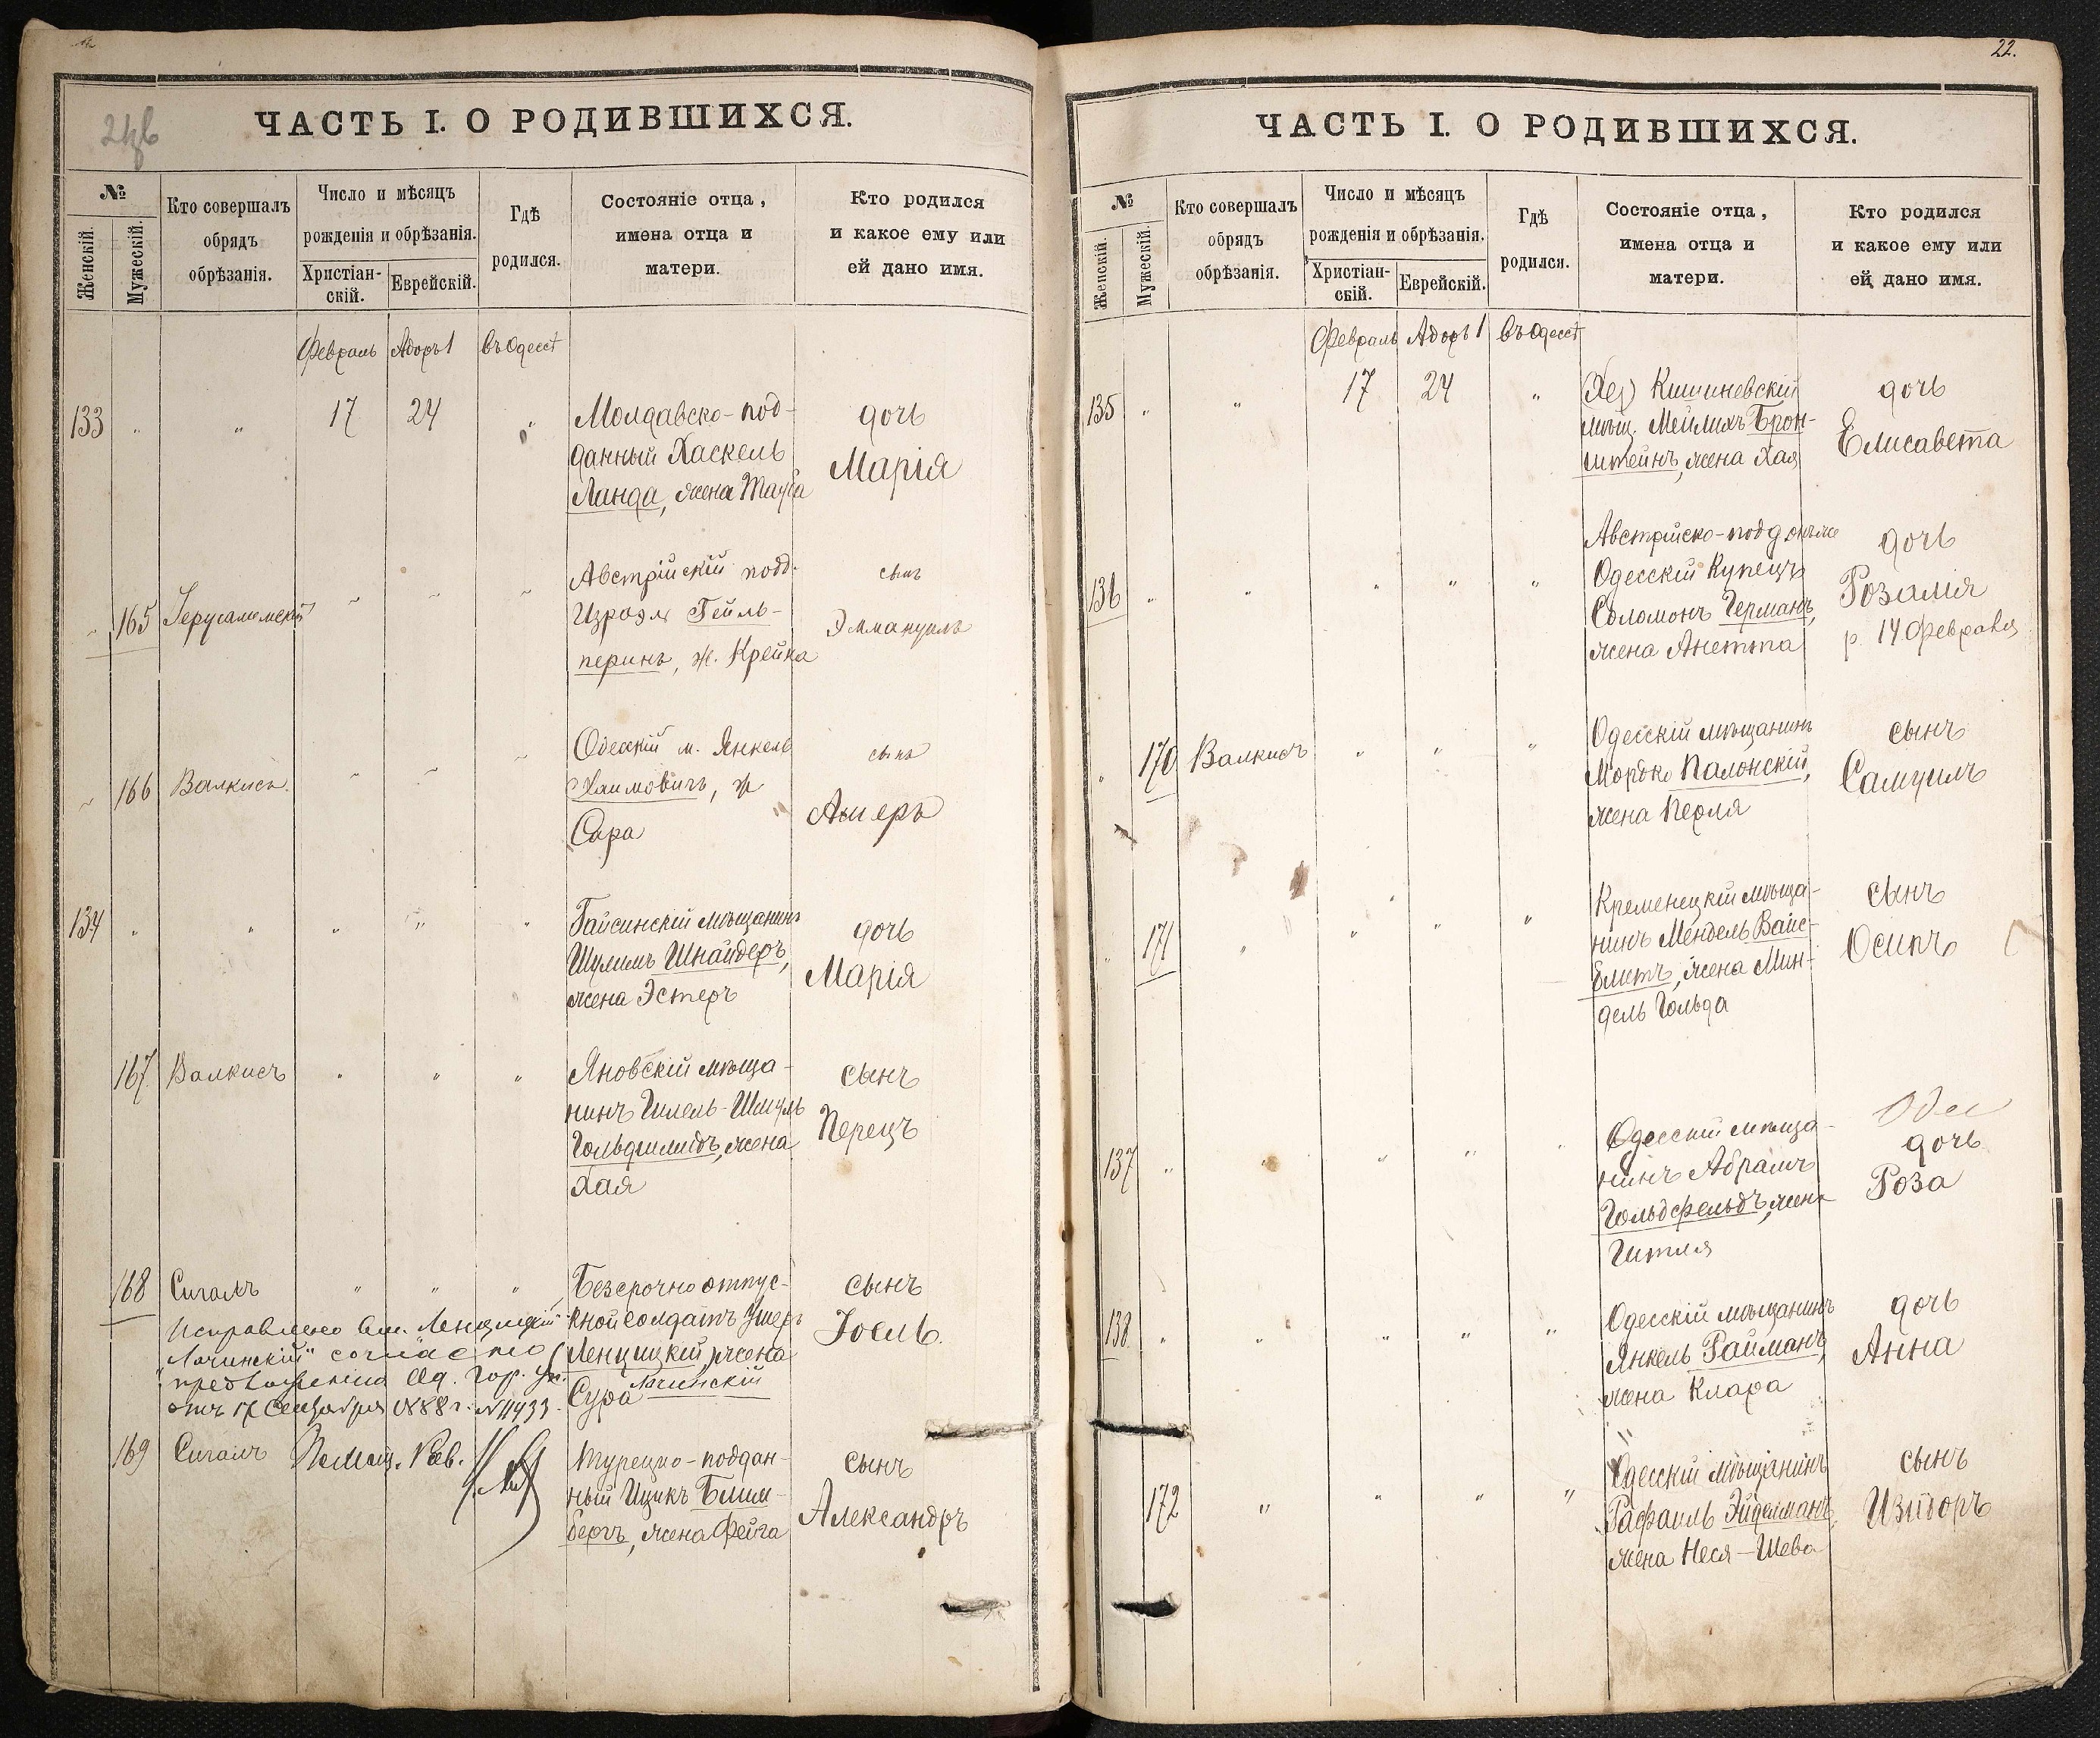 ЧАСТЬ I. О РОДИВШИХСЯ.
№
Женскій.
Мужескій.
Кто совершалъ
обрядъ
обрѣзанія.
Число и мѣсяцъ
рожденія и обрѣзанія.
Христіан-
скій.
Еврейскій.
Гдѣ
родился.
Состояніе отца,
имена отца и
матери.
Кто родился
и какое ему или
ей дано имя.
Февраль Адоръ 1 въ Одессѣ
133 " " 17 24 " Молдавско-под-
данный Хаскель
Ланда, жена Тауба
дочь
Марія
165 Іерусалимскій
Австрійскій подд.
Израэль Гейль-
перинъ, ж. Крейна
сынъ
Эммануилъ
166 Валкисъ.
Одесскій м. Янкель
Хаимовичъ, ж
Сара
сынъ
Ашеръ
134 " " " " " Гайсинскій мѣщанинъ
Шулимъ Шнайдеръ,
жена Эстеръ
дочь
Марія
167 Валкисъ " " " Яновскій мѣща-
нинъ Гилель-Шмуль
Гольдшмидъ, жена
Хая
сынъ
Перецъ
168 Сигалъ " " " Безсрочно отпус-
кной солдатъ Ушеръ
Ленчицкій, жена
Сура Лочинскій
сынъ
Іосль.
Исправлено вм. Ленчицкій
"Лочинскій" согласно
предложенія Од. Гор. Уп.
отъ 17 Сентября 1888 г. № 11433
169 Сигалъ
Помощ. Рав.
Турецко-поддан-
ный Ицикъ Блюм-
бергъ, жена Фейга
сынъ
Александръ
22.
ЧАСТЬ I. О РОДИВШИХСЯ.
№
Женскій.
Мужескій.
Кто совершалъ
обрядъ
обрѣзанія.
Число и мѣсяцъ
рожденія и обрѣзанія.
Христіан-
скій.
Еврейскій.
Гдѣ
родился.
Состояніе отца,
имена отца и
матери.
Кто родился
и какое ему или
ей дано имя.
Февраль Адоръ 1 въ Одессѣ
135 " " 17 24 " Кишиневскій
мѣщ. Мейлихъ Брон-
штейнъ, жена Хая
дочь
Елисавета
136 " " " " " Австрійско-подданный
Одесскій Купецъ
Соломонъ Германъ,
жена Анетта
дочь
Розалія
р. 14 Февраля
" 170 Валкисъ " " " Одесскій мѣщанинъ
Мордко Палонскій,
жена Перля
сынъ
Самуилъ
" 171 " " " " Кременецкій мѣща-
нинъ Мендель Вайс-
блитъ, жена Мин-
дель Гольда
сынъ
Осипъ
137 " " " " Одесскій мѣща-
нинъ Абрамъ
Гольдфельдъ, жена
Гитля
дочь
Роза
138 " " " " " Одесскій мѣщанинъ
Янкель Райманъ,
жена Клара
дочь
Анна
172 " " " " Одесскій мѣщанинъ
Рафаилъ Эйдельманъ,
жена Неся-Шева
сынъ
Изидоръ